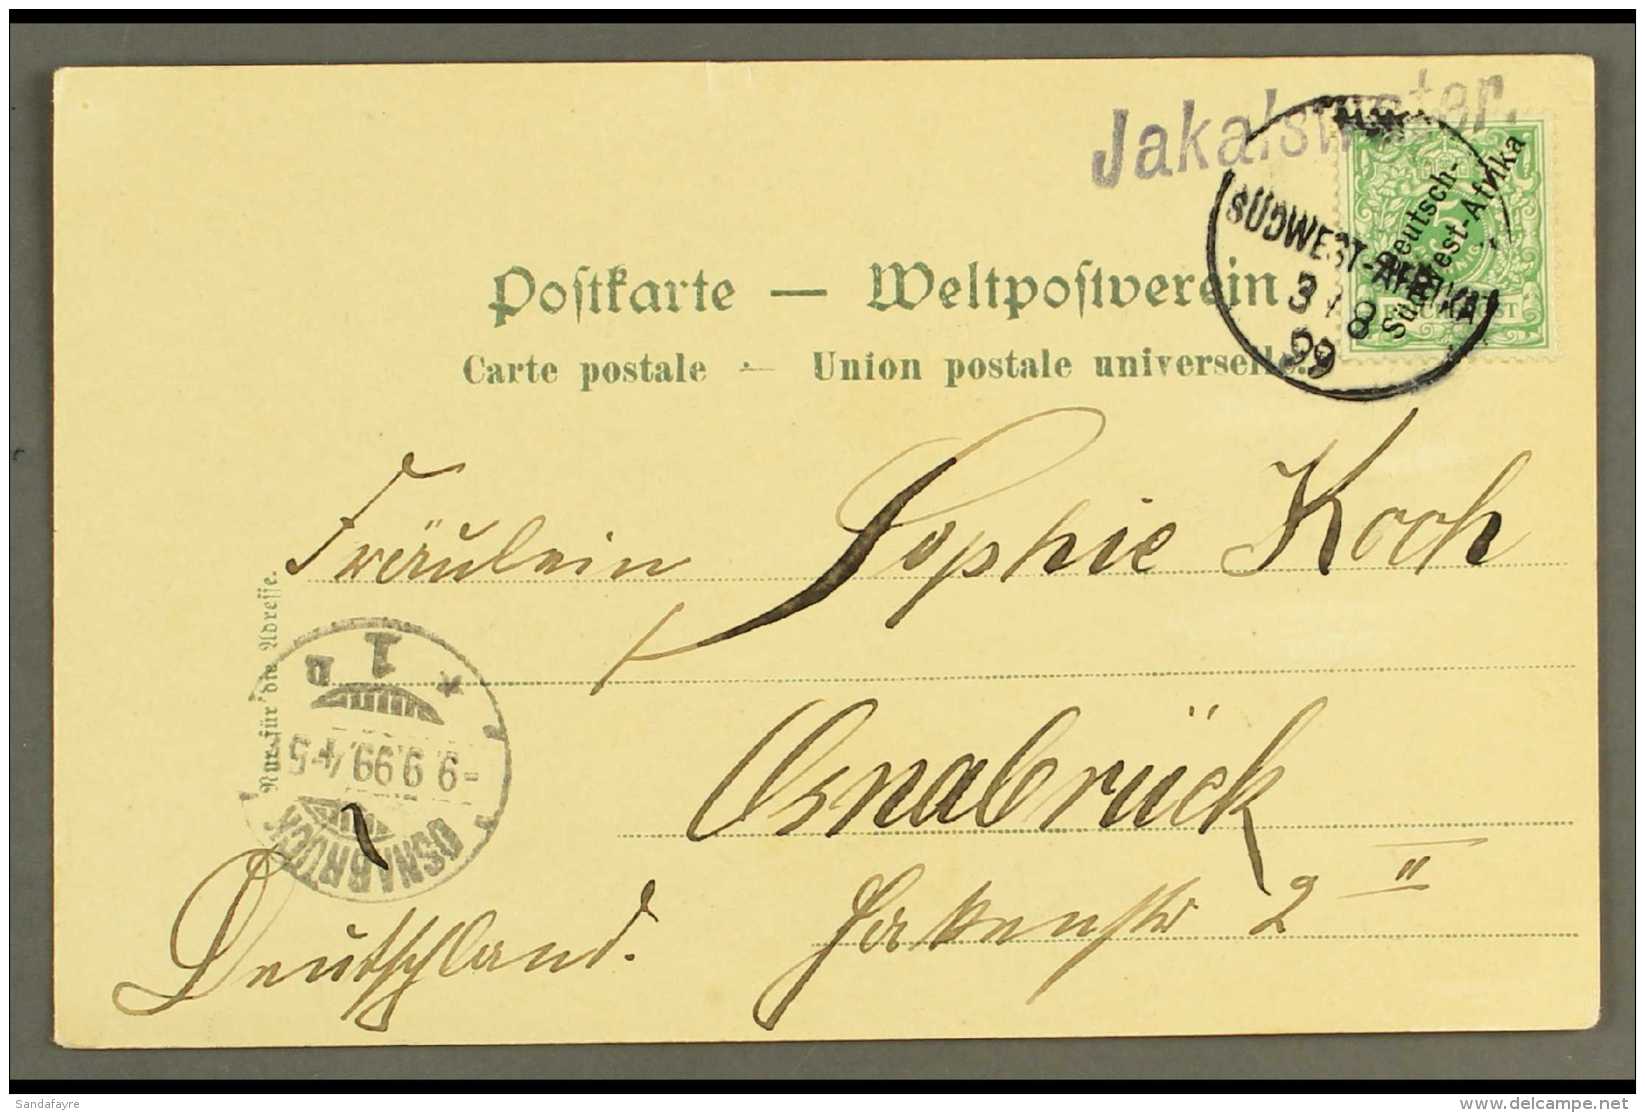 Jakalswater.
SÜDWEST-AFRIKA
3/8
99
Deutsch-
Südwest-Afrika
5
Postkarte — Weltpostverein
Carte postale — Union postale universelle.
Fräulein Sophie Koch
Nur für die Adresse.
Osnabrück
2 II
Deutschland.
OSNABRÜCK
-9.9.99.4-5
* 1 B
Sandafayre
www.delcampe.net